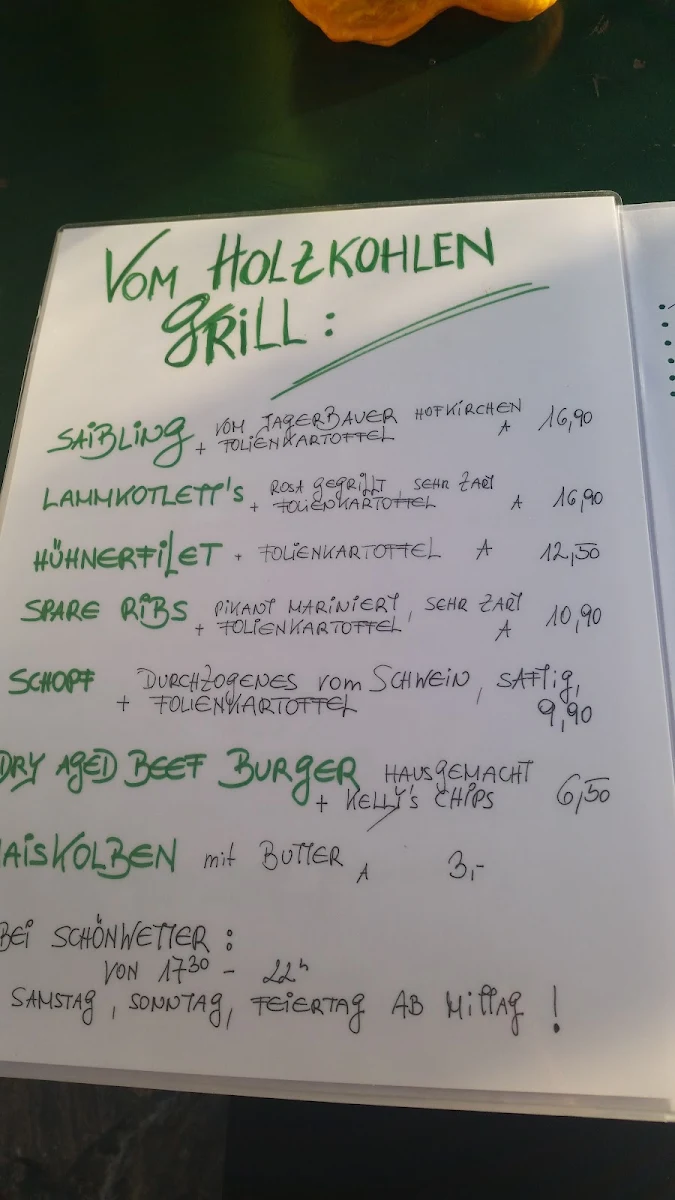 VOM HOLZKOHLEN
GRILL:
SAIBLING VOM JAGERBAUER HOFKIRCHEN
+ FOLIENKARTOFFEL A 16,90
LAMMKOTLETT'S ROSA gegrillt, SEHR ZART
+ FOLIENKARTOFFEL A 16,90
HÜHNERFILET + FOLIENKARTOFFEL A 12,50
SPARE RIBS PIKANT MARINIERT, SEHR ZART
+ FOLIENKARTOFFEL A 10,90
SCHOPF DURCHZOGENES vom SCHWEIN, SAFTIG,
+ FOLIENKARTOFFEL 9,90
DRY AGED BEEF BURGER HAUSGEMACHT
+ KELLY'S CHIPS 6,50
AISKOLBEN mit BUTTER A 3,-
BEI SCHÖNWETTER:
VON 17³⁰ - 22ʰ
SAMSTAG, SONNTAG, FEIERTAG AB MITTAG!